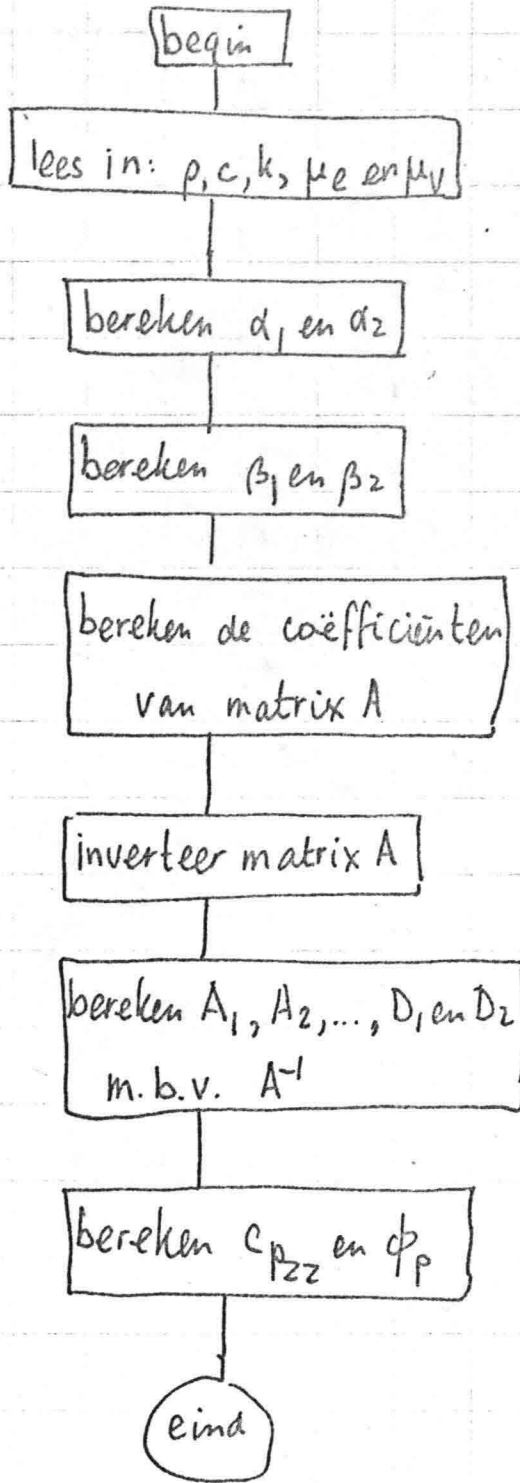 begin
lees in: ρ, c, k, μe en μv
bereken α1 en α2
bereken β1 en β2
bereken de coëfficiënten
van matrix A
inverteer matrix A
bereken A1, A2, ..., D1 en D2
m.b.v. A⁻¹
bereken Cpzz en ϕp
eind